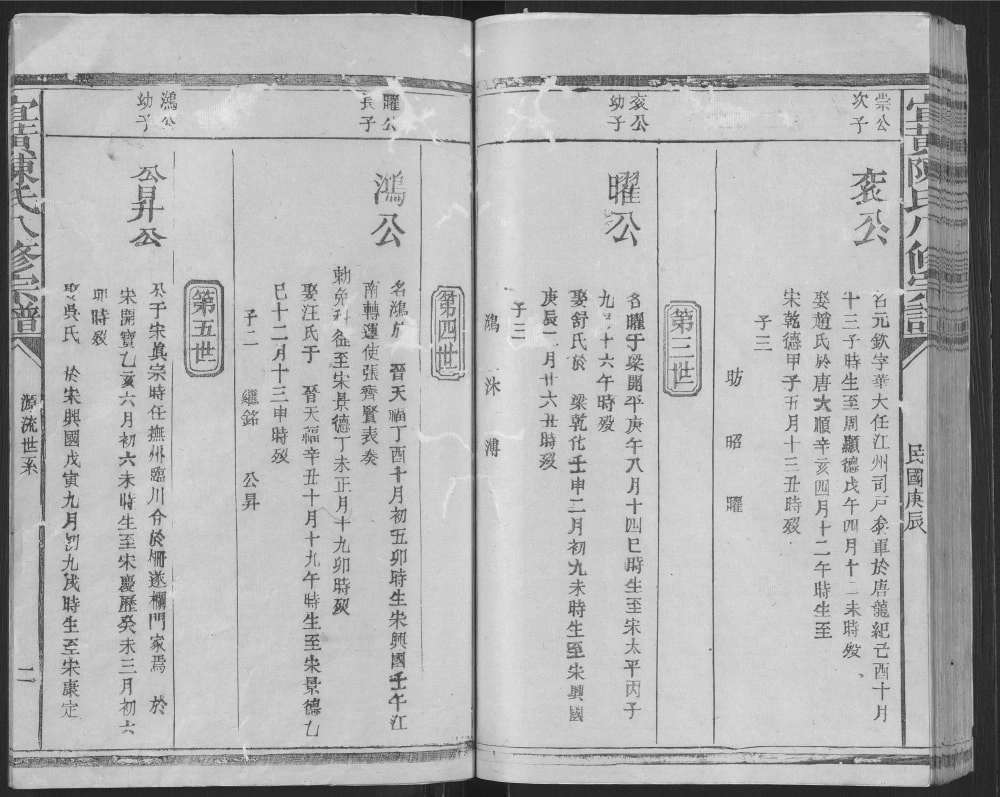 宜黃陳氏八修宗譜
民國庚辰
崇公
次子
袞公
名元欽字華大任江州司戶參軍於唐龍紀己酉十月
十三子時生至周顯德戊午四月十二未時歿
娶趙氏於唐大順辛亥四月十二午時生至
宋乾德甲子五月十三丑時歿
子三
昉 昭 曜
第三世
袞公
幼子
曜公
名曜于梁開平庚午八月十四巳時生至宋太平丙子
九月十六午時歿
娶舒氏於 梁乾化壬申二月初九未時生至宋興國
庚辰 月廿六丑時歿
子三
鴻 沐 溥
第四世
曜公
長子
鴻公
名鴻於 晉天福丁酉十月初五卯時生宋興國壬午江
南轉運使張齊賢表奏
勅免科 至宋景德丁未正月十九卯時歿
娶汪氏于 晉天福辛丑十月十九午時生至宋景德乙
巳十二月十三申時歿
子二 繼銘 公昇
第五世
鴻公
幼子
公昇公
于宋眞宗時任撫州臨川令於 遂欄門家焉 於
宋開寶乙亥六月初六未時生至宋慶歷癸未三月初六
卯時歿
娶吳氏 於宋興國戊寅九月初九戌時生至宋康定
宜黃陳氏八修宗譜
源流世系
二